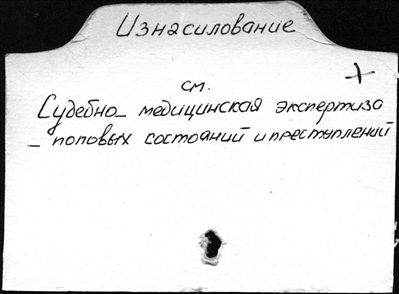 Изнасилование
см.
Судебно_ медицинская экспертиза
_ половых состояний и преступлений